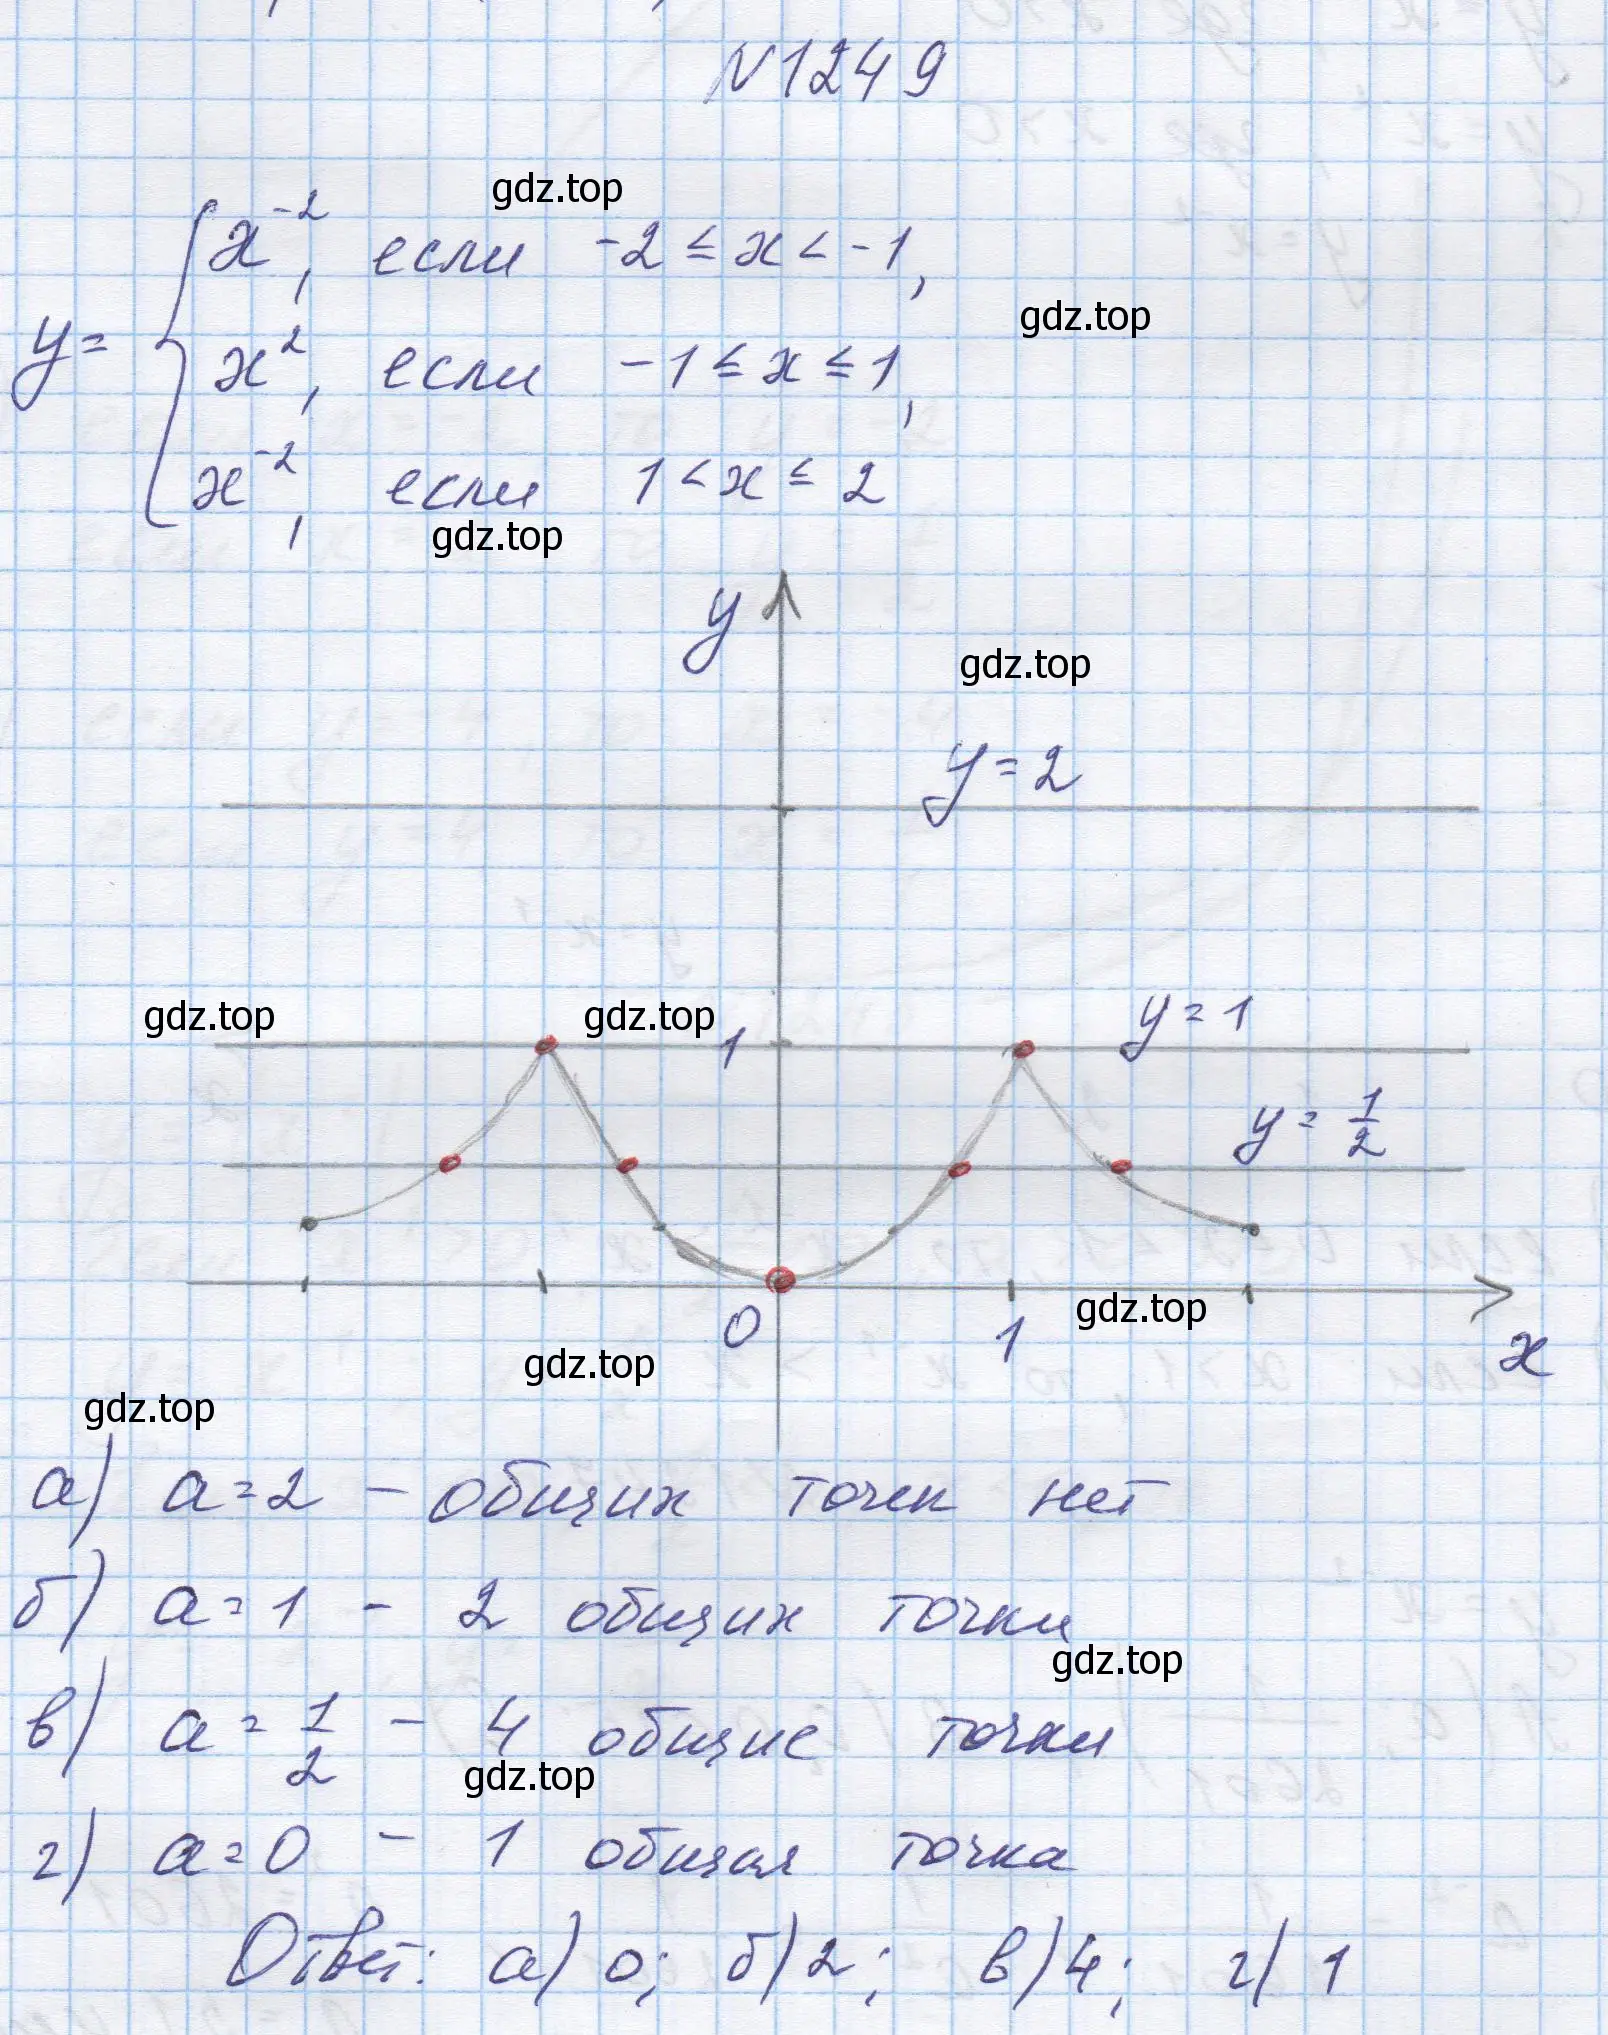 N1249
gdz.top
x⁻², если -2 ≤ x < -1,
gdz.top
y= { x², если -1 ≤ x ≤ 1,
x⁻², если 1 < x ≤ 2
gdz.top
y
gdz.top
y=2
gdz.top gdz.top
1 y=1
y= 1/2
0 1 gdz.top x
gdz.top
gdz.top
а) a=2 - общих точек нет
б) a=1 - 2 общих точки
gdz.top
в) a= 1/2 - 4 общие точки
gdz.top
г) a=0 - 1 общая точка
Ответ: а) 0; б) 2; в) 4; г) 1